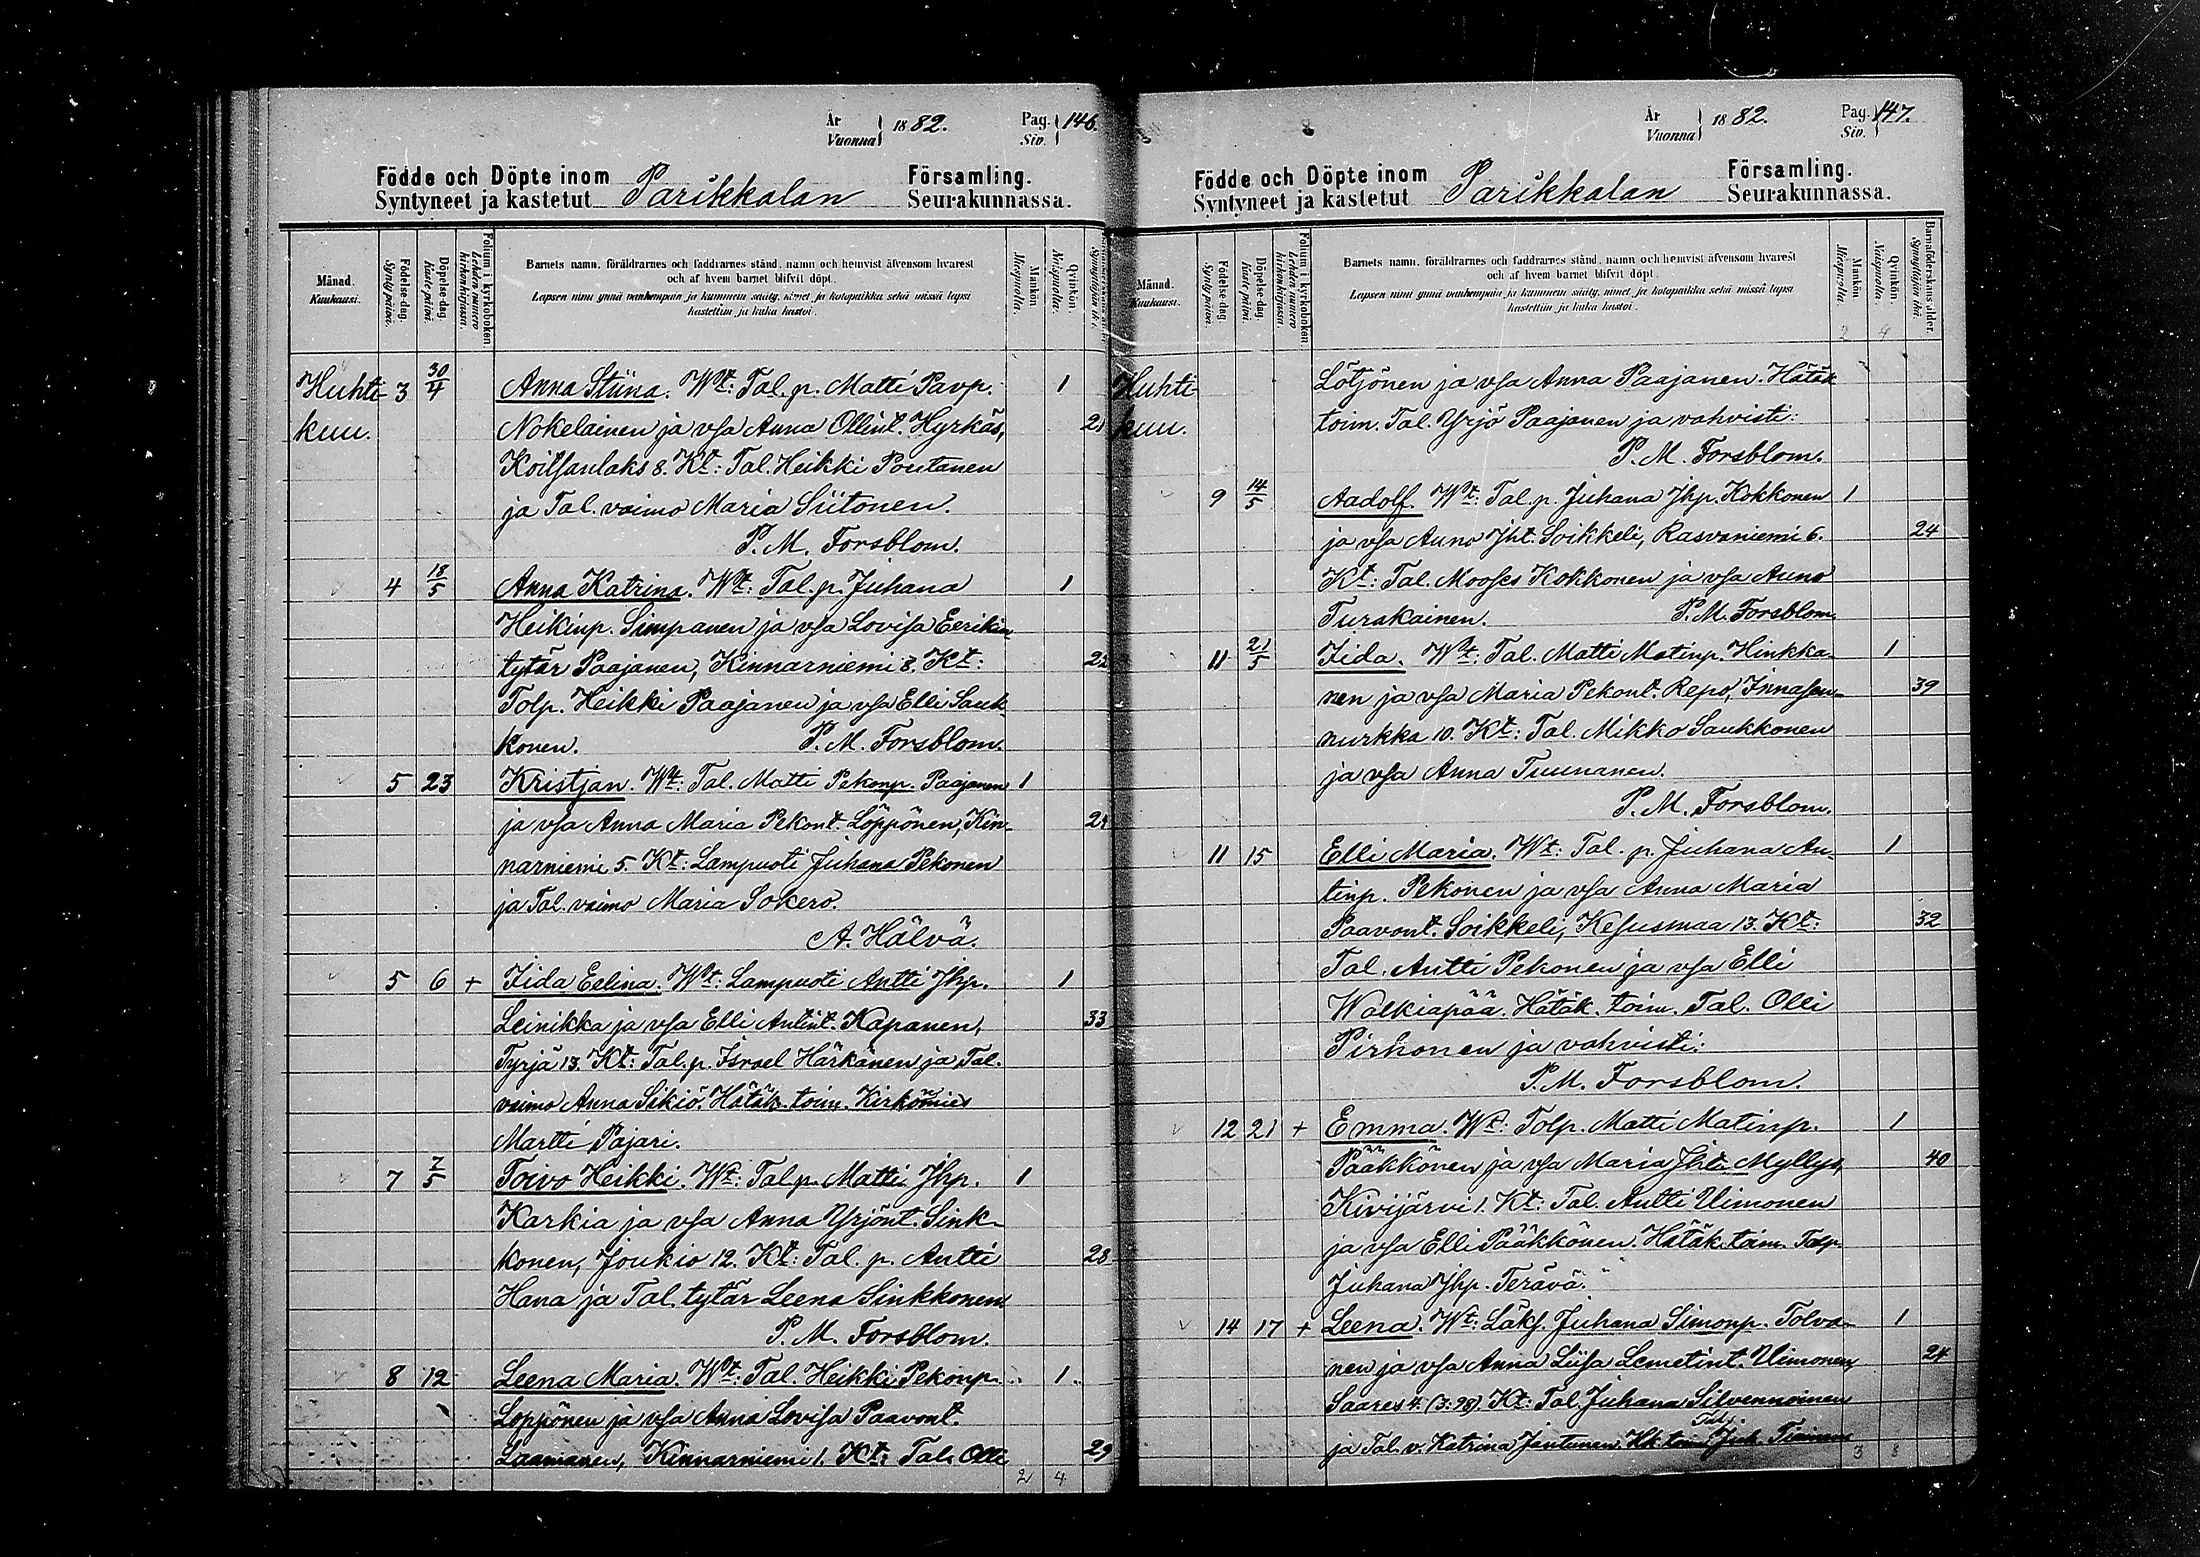 År
Vuonna 1882. Pag. Siv. 146.
Födde och Döpte inom Parikkalan Församling.
Syntyneet ja kastetut Seurakunnassa.
Månad. Kuukausi.
Födelse-dag. Synty päivä.
Döpelse-dag. Kaste päivä.
Folium i kyrkoboken Lehden numero kirkonkirjassa.
Barnets namn, föräldrarnes och faddrarnes stånd, namn och hemvist äfvensom hvarest
och af hvem barnet blifvit döpt.
Lapsen nimi ynnä vanhempain ja kummein sääty, nimet ja kotopaikka sekä missä lapsi
kastettiin ja kuka kastoi.
Mankön Miespuolia.
Qvinkön. Naispuolia.
Huhti- 3 30/4 Anna Stiina. Wt: Tal. p. Matti Pavp. 1
kuu. Nokelainen ja vsa Anna Ollint. Hyrkäs, 21
Koitsanlaks 8. Kt: Tal. Heikki Poutanen
ja Tal. vaimo Maria Siitonen.
P. M. Forsblom.
4 18/5 Anna Katrina. Wt: Tal. p. Juhana 1
Heikinp. Simpanen ja vsa Lovisa Eerikin
tytär Paajanen, Kinnarniemi 8. Kt: 22
Tolp. Heikki Paajanen ja vsa Elli Sauk-
konen. P. M. Forsblom.
5 23 Kristjan. Wt: Tal. Matti Pekonp. Paajanen 1
ja vsa Anna Maria Pekont. Löppönen, Kin- 24
narniemi 5. Kt: Lampuoti Juhana Pekonen
ja Tal. vaimo Maria Sokero.
A. Hälvä.
5 6 + Iida Eelina. Wt: Lampuoti Antti Jhp. 1
Leinikka ja vsa Elli Antint. Kapanen, 33
Tyrjä 13. Kt: Tal. p. Israel Härkänen ja Tal.
vaimo Anna Sikiö. Hätäk. toim. Kirkomies
Martti Pajari.
7 7/5 Toivo Heikki. Wt: Tal p. Matti Jhp. 1
Karkia ja vsa Anna Yrjönt. Sink-
konen, Joukio 12. Kt: Tal. p. Antti 28
Hana ja Tal. tytär Leena Sinkkonen.
P. M. Forsblom.
8 12 Leena Maria. Wt: Tal. Heikki Pekonp. 1
Loppönen ja vsa Anna Lovisa Paavont.
Laamanen, Kinnarniemi 1. Kt: Tal. Olli 29
2 4
År
Vuonna 1882. Pag. Siv. 147.
Födde och Döpte inom Parikkalan Församling.
Syntyneet ja kastetut Seurakunnassa.
Månad. Kuukausi.
Födelse-dag. Synty päivä.
Döpelse-dag. Kaste päivä.
Folium i kyrkoboken Lehden numero kirkonkirjassa.
Barnets namn, föräldrarnes och faddrarnes stånd, namn och hemvist äfvensom hvarest
och af hvem barnet blifvit döpt.
Lapsen nimi ynnä vanhempain ja kummein sääty, nimet ja kotopaikka sekä missä lapsi
kastettiin ja kuka kastoi.
Mankön Miespuolia. 2
Qvinkön. Naispuolia. 4
Barnaföderskans ålder. Synnyttäjän ikä.
Huhti Lötjönen ja vsa Anna Paajanen. Hätäk
kuu. toim. Tal. Yrjö Paajanen ja vahvisti:
P. M. Forsblom.
9 14/5 Aadolf. Wt: Tal. p. Juhana Jhp. Kokkonen 1
ja vsa Anna Jht. Soikkeli, Rasvaniemi 6. 24
Kt: Tal. Mooses Kokkonen ja vsa Anna
Turakainen. P. M. Forsblom.
11 21/5 Iida. Wt: Tal. Matti Matinp. Hinkka- 1
nen ja vsa Maria Pekont. Repo, Innasen- 39
nurkka 10. Kt: Tal. Mikko Saukkonen
ja vsa Anna Tuunanen.
P. M. Forsblom.
11 15 Elli Maria. Wt: Tal. p. Juhana An- 1
tinp. Pekonen ja vsa Anna Maria
Paavont. Soikkeli, Kesusmaa 13. Kt: 32
Tal. Antti Pekonen ja vsa Elli
Walkiapää. Hätäk. toim. Tal. Olli
Pirhonen ja vahvisti:
P. M. Forsblom.
12 21 + Emma. Wt: Tolp. Matti Matinp. 1
Pääkkönen ja vsa Maria Jht. Myllys, 40
Kivijärvi 1. Kt: Tal. Antti Uimonen
ja vsa Elli Pääkkönen. Hätäk. toim. Tolp.
Juhana Jhp. Terävä.
14 17 + Leena. Wt: Läks. Juhana Simonp. Tolva- 1
nen ja vsa Anna Liisa Lemetint. Uimonen, 24
Saares 4. (3:98). Kt: Tal. Juhana Silvennoinen
ja Tal. v. Katrina Jantunen. Hk. toim. Tal. Juh. Tiainen
3 8